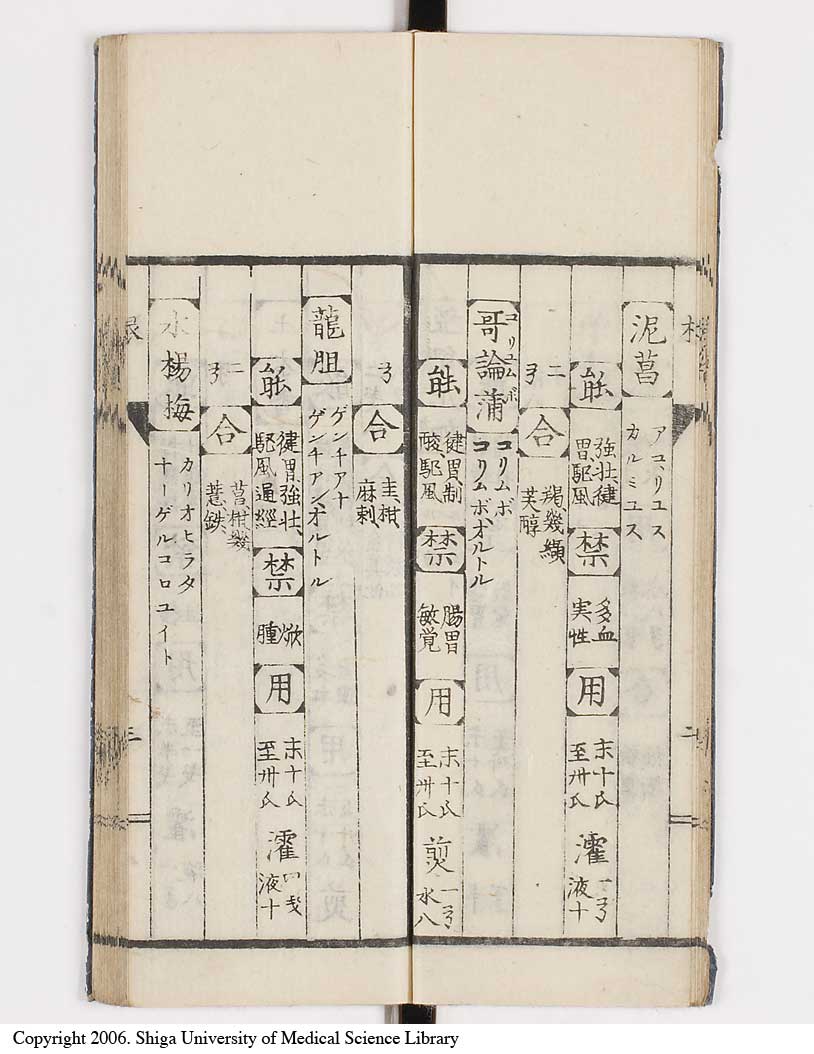 泥菖 アコリユス カルミユス
能 強壮健胃、駆風 禁 多血実性 用 末十氏至卅氏 濯 液十
二 合 芙醇
哥論蒲 コリユムボ コリムボ、オルトル
能 健胃制酸、駆風 禁 腸胃敏覚 用 末十氏至卅氏 煎 水八
合 圭、柑麻刺
龍胆 ゲンチアナ ゲンチアン、オルトル
能 健胃強壮、駆風通経 禁 焮腫 用 末十氏至卅氏 濯 液十
二 合 菖、柑幾薏鉄
水楊梅 カリオヒラタ ナーゲルコロユイト
二
三
Copyright 2006. Shiga University of Medical Science Library